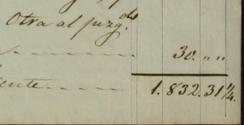 Otra al juzg.do
30. " "
ente 1.832.31¼.